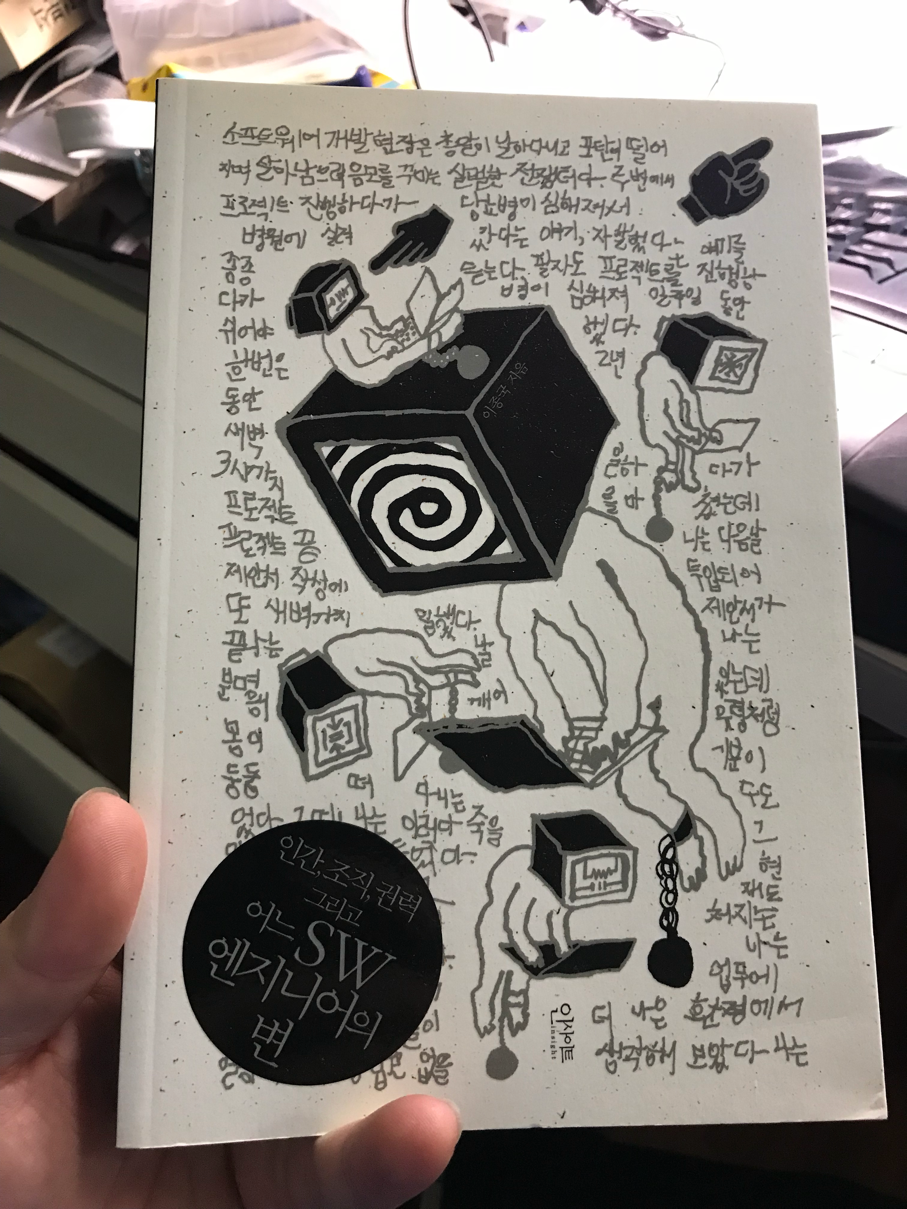 소프트웨어 개발현장은 총알이 날아다니고 포탄이 떨어
지며 살아남으려 음모를 꾸미는 살벌한 전쟁터다. 주변에서
프로젝트 진행하다가 당뇨병이 심해져서
병원에 실려 갔다는 얘기, 자살했다는 얘기를
종종 듣는다. 필자도 프로젝트를 진행하
다가 병이 심해져 일주일 동안
쉬어야 했다.
한번은 2년
동안
새벽
3시까지 일하 다가
프로젝트 를 마 쳤는데
프로젝트 끝 나는 다음날
제안서 작성에 투입되어
또 새벽까지 일했다. 제안서가
끝나는 날 나는
분명 깨어
몸이 기분이
둥둥 떠 다니는 수도
없다. 그때 나는 이러다 죽을
현
나는
업무에
더 나은 환경에서
나는
이종국 지음
인간, 조직, 권력
그리고
어느 SW
엔지니어의
변
인사이트
insight